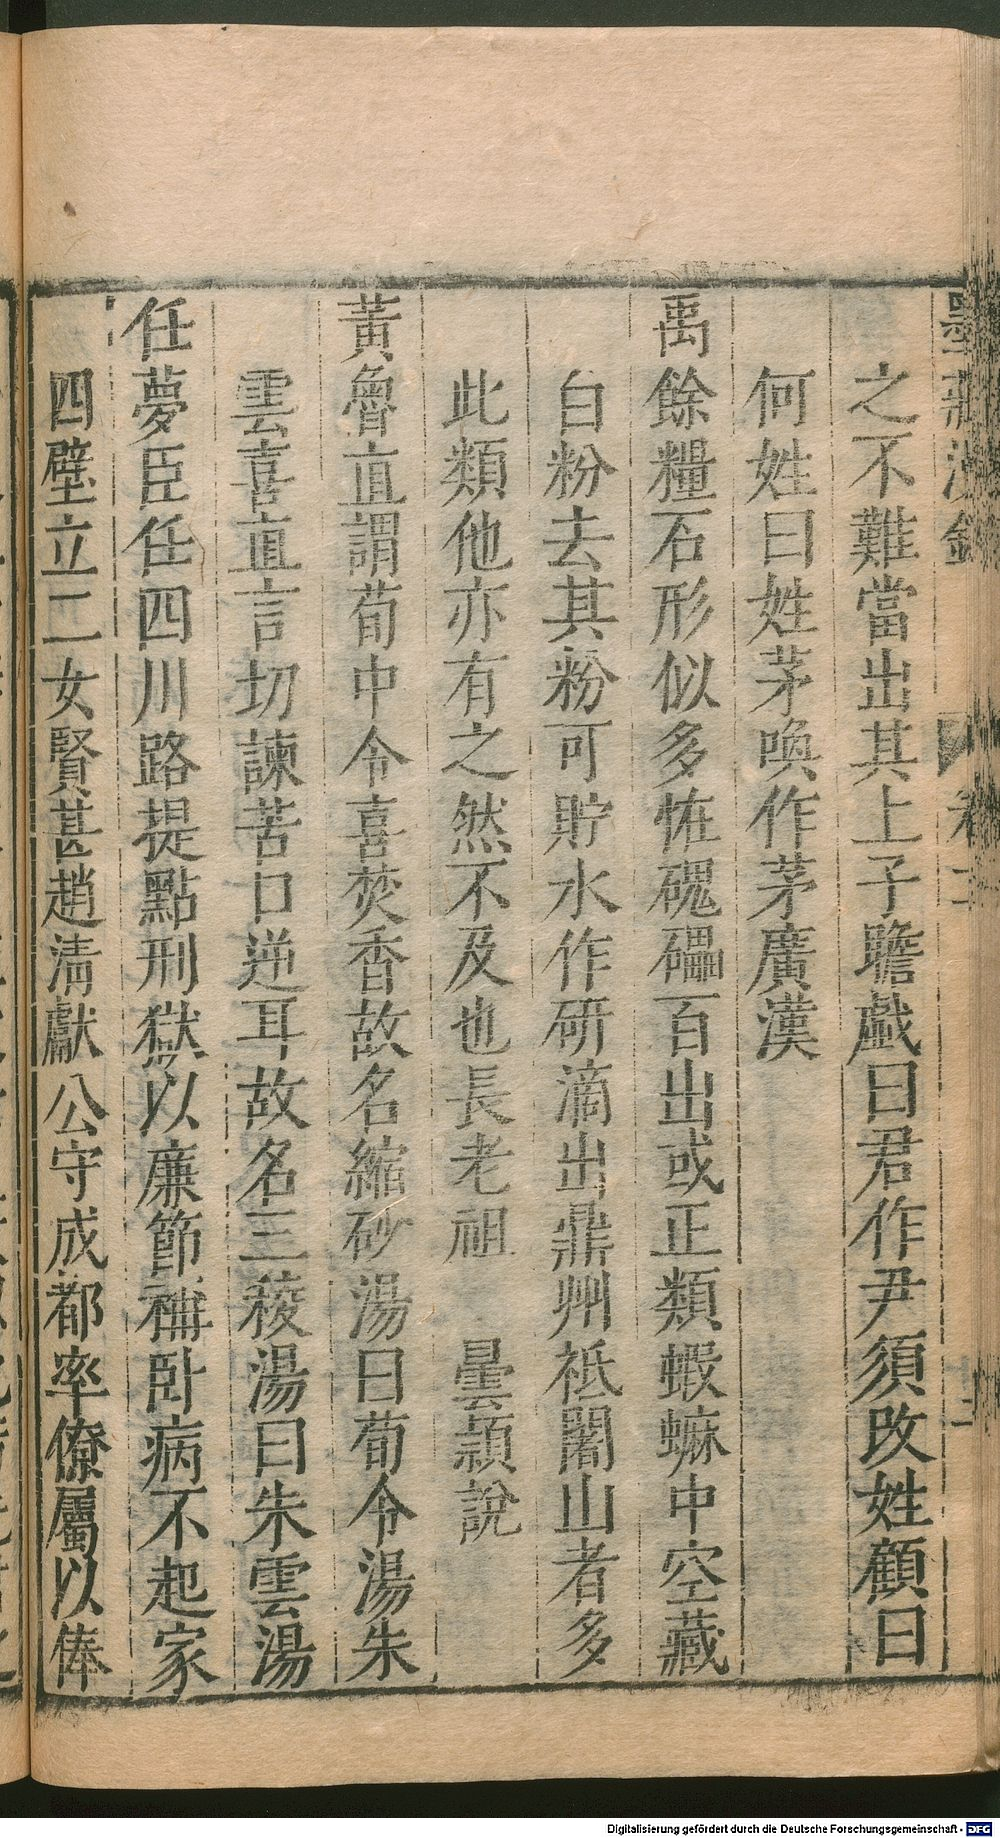 之不難當出其上子瞻戲曰君作尹須改姓顧曰
何姓曰姓茅喚作茅廣漢
禹餘糧石形似多恠磈礧百出或正類蝦蟆中空藏
白粉去其粉可貯水作研滴出鼎州祗闍山者多
此類他亦有之然不及也長老祖　曇頴說
黃魯直謂荀中令喜焚香故名縮砂湯曰荀令湯朱
雲喜直言切諫苦口逆耳故名三稜湯曰朱雲湯
任夢臣任四川路提點刑獄以廉節稱卧病不起家
四壁立二女賢甚趙清獻公守成都率僚屬以俸
Digitalisierung gefördert durch die Deutsche Forschungsgemeinschaft - DFG